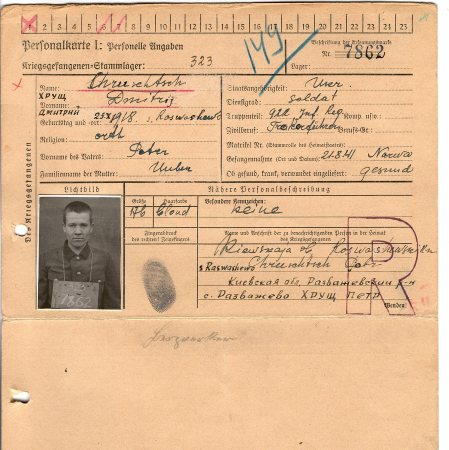 1 2 3 4 5 6 7 8 9 10 11 12 13 14 15 16 17 18 19 20 21 22 23 24 25
Personalkarte I: Personelle Angaben
Kriegsgefangenen-Stammlager: 323
149
Beschriftung der Erkennungsmarke
Nr. 7862
Lager:
Des Kriegsgefangenen
Name: Chruschtsch
ХРУЩ
Vorname: Dmitrij
ДМИТРИЙ
Geburtstag und -ort: 25 X 1918.
Religion: orth
Vorname des Vaters: Peter
Familienname der Mutter:
Staatsangehörigkeit:
Dienstgrad: Soldat
Truppenteil: Inf. Reg Komp. usw.:
Zivilberuf: Berufs-Gr.:
Matrikel Nr. (Stammrolle des Heimatstaates):
Gefangennahme (Ort und Datum): 21.8.41 Narwa
Ob gesund, krank, verwundet eingeliefert: gesund
Lichtbild
7862
Größe
Haarfarbe
Fingerabdruck
des rechten! Zeigefingers
Nähere Personalbeschreibung
Besondere Kennzeichen:
keine
Name und Anschrift der zu benachrichtigenden Person in der Heimat
des Kriegsgefangenen
Chruschtsch
Киевская обл. Разважевский р-н
с. Разважево ХРУЩ ПЕТР
Wenden!
R